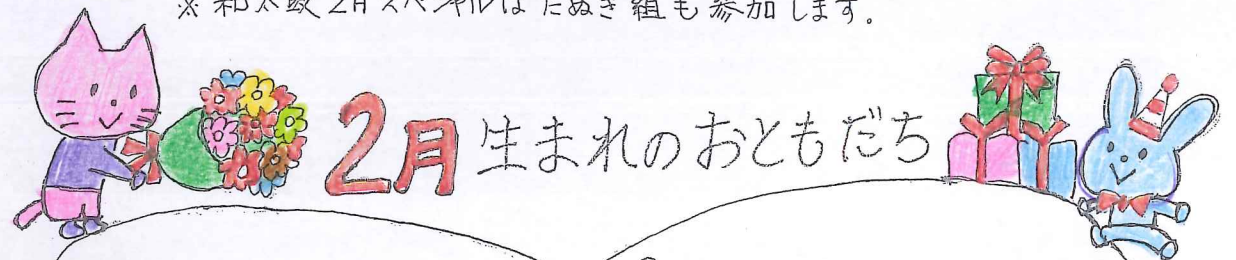 ※和太鼓2月スペシャルはたぬき組も参加します。
2月生まれのおともだち